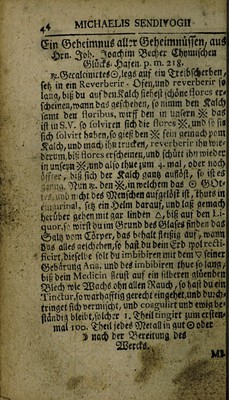 44 MICHAELIS SENDIVOGII
Ein Geheimnus aller Geheimnüssen, aus
Hrn. Joh. Joachim Becher Chymischen
Glücks-Hafen. p. m. 218.
Gecalcinirtes ☉, legs auf ein Treibscherben,
setz in ein Reverberir-Ofen, und reverberir so
lang, biß du auf den Kalch siehest schöne flores er-
scheinen, wann das geschehen, so nimm den Kalch
samt den floribus, wirff den in unsern ※ das
ist in S.V. so solviren sich die flores ※, und so sie
sich solvirt haben, so gieß den ※ fein gemach vom
Kalch, und mach ihn trucken, reverberir ihn wie-
derum, biß flores erscheinen, und schütt ihn wieder
in unsern ※, und also thue zum 4. mal, oder noch
öffter, biß sich der Kalch gantz auflöst, so ist es
genug. Nun den ※, in welchem das ☉ GOt-
tes, und nicht des Menschen aufgelöst ist, thuts in
ein urinal, setz ein Helm darauf, und laß gemach
herüber gehen mit gar linden △, biß auf den Li-
quor, so wirst du im Grund des Glases finden das
Saltz vom Cörper, das behalt fleißig auf, wann
das alles geschehen, so hast du dein Erd wol recti-
ficirt, dieselbe solt du imbibiren mit dem ▽ seiner
Gebärung Ana, und des imbibiren thue so lang,
biß dein Medicin fleust auf ein silberen glüenden
Blech wie Wachs ohn allen Rauch, so hast du ein
Tinctur, so warhafftig gerecht eingehet, und durch-
tringet sich vermischt, und coagulirt und ewig be-
ständig bleibt, solcher 1. Theil tingirt zum ersten-
mal 100. Theil jedes Metall in gut ☉ oder
☽ nach der Bereitung des
Wercks.
MI-